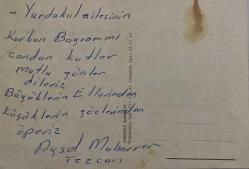 Yurdakul ailesinin
Kurban Bayramını
candan kutlar
mutlu günler
dileriz
Büyüklerin Ellerinden
küçüklerin gözlerinden
öperiz
Aysel Muharrem
Tezcan